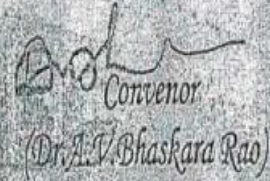 Convenor
(Dr.A.V.Bhaskara Rao)